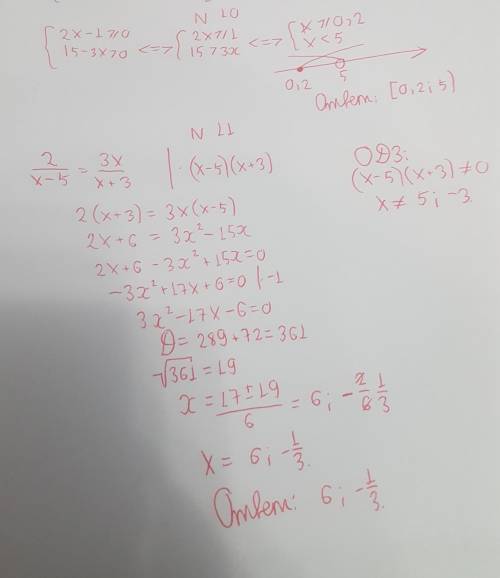 N 10
{2x-1⩾0 15-3x>0 <=> {2x⩾1 15>3x <=> {x⩾0,2 x<5
0,2 5
Ответ: [0,2; 5)
N 11
2/(x-5) = 3x/(x+3) | ·(x-5)(x+3)
ОДЗ:
(x-5)(x+3)≠0
x≠ 5; -3.
2(x+3) = 3x(x-5)
2x+6 = 3x²-15x
2x+6-3x²+15x=0
-3x²+17x+6=0 |·-1
3x²-17x-6=0
D= 289+72=361
√361=19
x = (17±19)/6 = 6; -2/6 1/3
x= 6; -1/3.
Ответ: 6; -1/3.